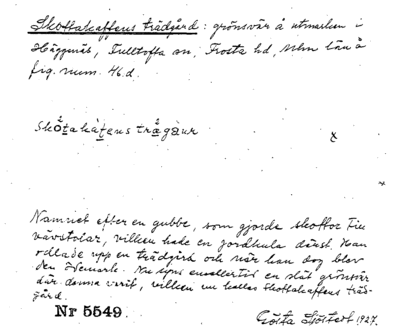 Skottakaffens trädgård: grönsvär å utmarken i
Häggenäs, Fulltofta sn, Frosta hd, Mlm län å
fig. num. 46.d.
Skottakáfens trågaur
x
Namnet efter en gubbe, som gjorde skottor till
vävstolar, vilken hade en jordkula därst. Han
odlade upp en trädgård och när han dog blev
den utmark. Nu synes emellertid en slät grönsvär
där denna varit, vilken nu kallas Skottakaffens träd-
gård.
Nr 5549
Gösta Sjöstedt 1927.